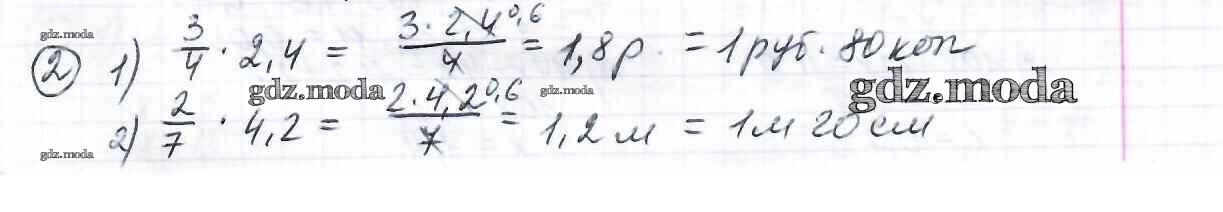 gdz.moda
② 1) 3/4 · 2,4 = 3·2,4 0,6 / 4 = 1,8 р. = 1 руб. 80 коп
gdz.moda gdz.moda gdz.moda
2) 2/7 · 4,2 = 2·4,2 0,6 / 7 = 1,2 м = 1 м 20 см
gdz.moda